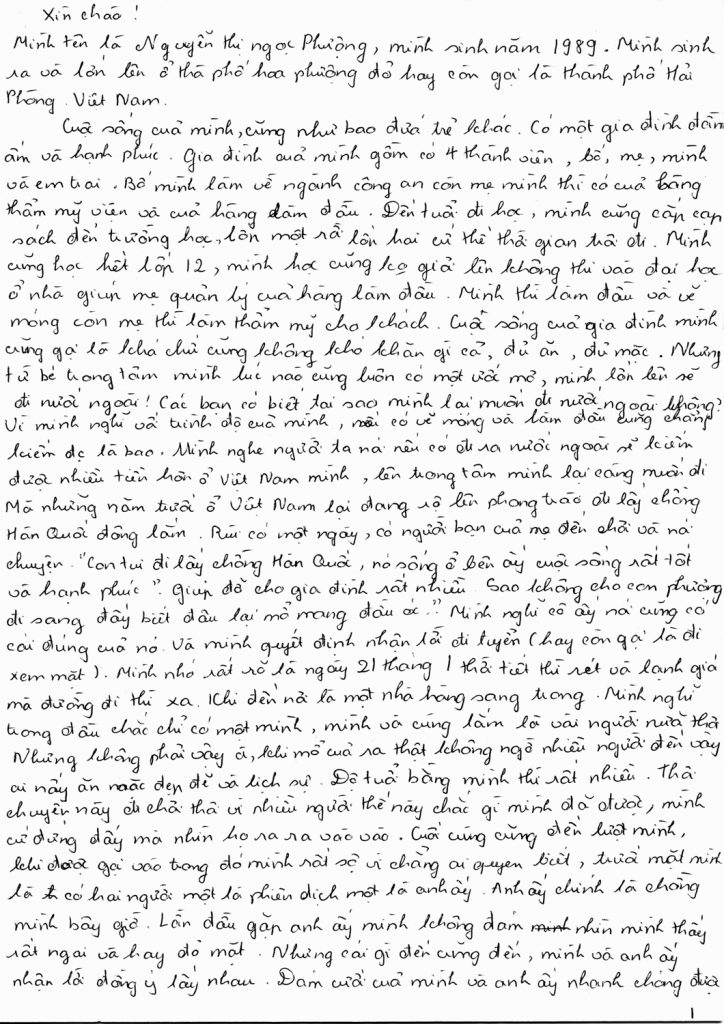 Xin chào !
Mình tên là Nguyễn thị ngọc Phượng, mình sinh năm 1989. Mình sinh
ra và lớn lên ở thà phố hoa phượng đỏ hay còn gọi là thành phố Hải
Phòng. Việt Nam.
Cuộ sống cuả mình, cũng như bao đứa trẻ khác. Có một gia đình đầm
ấm và hạnh phúc. Gia đình cuả mình gồm có 4 thành viên, bố, mẹ, mình
và em trai. Bố mình làm về ngành công an còn mẹ mình thì có cuả hàng
thẩm mỹ viên và cuả hàng làm đầu. Đến tuổi đi học, mình cũng cắp cạp
sách đến trường học, lớn một rồi lớn hai cứ thế thời gian trôi đi. Mình
cũng học hết lớp 12, mình học cũng ko giỏi lên không thi vào đại học
ở nhà giúp mẹ quản lý cuả hàng làm đầu. Mình thì làm đầu và vẽ
móng còn mẹ thì làm thẩm mỹ cho khách. Cuộ sống cuả gia đình mình
cũng gọi là khá chứ cũng không khó khăn gì cả, đủ ăn, đủ mặc. Nhưng
từ bé trong tâm mình lúc nào cũng luôn có một ước mơ, mình lớn lên sẽ
đi nước ngoài! Các bạn có biết tại sao mình lại muốn đi nước ngoài không?
Vì mình nghĩ với trình độ cuả mình, nếu có vẽ móng và làm đầu cũng chẳng
kiếm đc là bao. Mình nghe người ta nói nếu có đi ra nước ngoài sẽ kiếm
được nhiều tiền hơn ở Việt Nam mình, lên trong tâm mình lại càng muốn đi
Mà những năm trước ở Việt Nam lại đang rộ lên phong trào đi lấy chồng
Hàn Quốc đông lắm. Rồi có một ngày, có người bạn cuả mẹ đến chơi và nói
chuyện. "Con tui đi lấy chồng Hàn Quốc, nó sống ở bên ấy cuộ sống rất tốt
và hạnh phúc". Giúp đỡ cho gia đình rất nhiều. Sao không cho con phượng
đi sang đấy biết đâu lại mở mang đầu óc." Mình nghĩ cô ấy nói cũng có
cái đúng cuả nó. Và mình quyết định nhận lời đi tuyển (hay còn gọi là đi
xem mặt). Mình nhớ rất rõ là ngày 21 tháng 1 thời tiết thì rét và lạnh giá
mà đường đi thì xa. Khi đến nơi là một nhà hàng sang trọng. Mình nghĩ
trong đầu chắc chỉ có một mình, mình và cùng lắm là vài người nữa thôi
Nhưng không phải vậy ạ, khi mở cuả ra thật không ngờ nhiều người đến vậy
ai nấy ăn mặc đẹp đẽ và lịch sự. Độ tuổi bằng mình thì rất nhiều. Thôi
chuyến này đi chơi thôi vì nhiều người thế này chắc gì mình đã được, mình
cứ đứng đấy mà nhìn họ ra ra vào vào. Cuối cùng cũng đến lượt mình,
khi được gọi vào trong đó mình rất sợ vì chẳng ai quyen biết, trước mặt mình
là có hai người một là phiên dịch một là anh ấy. Anh ấy chính là chồng
mình bây giờ. Lần đầu gặp anh ấy mình không dám nhìn mình thấy
rất ngại và hay đỏ mặt. Nhưng cái gì đến cũng đến, mình và anh ấy
nhận lời đồng ý lấy nhau. Đám cưới cuả mình và anh ấy nhanh chóng được
1